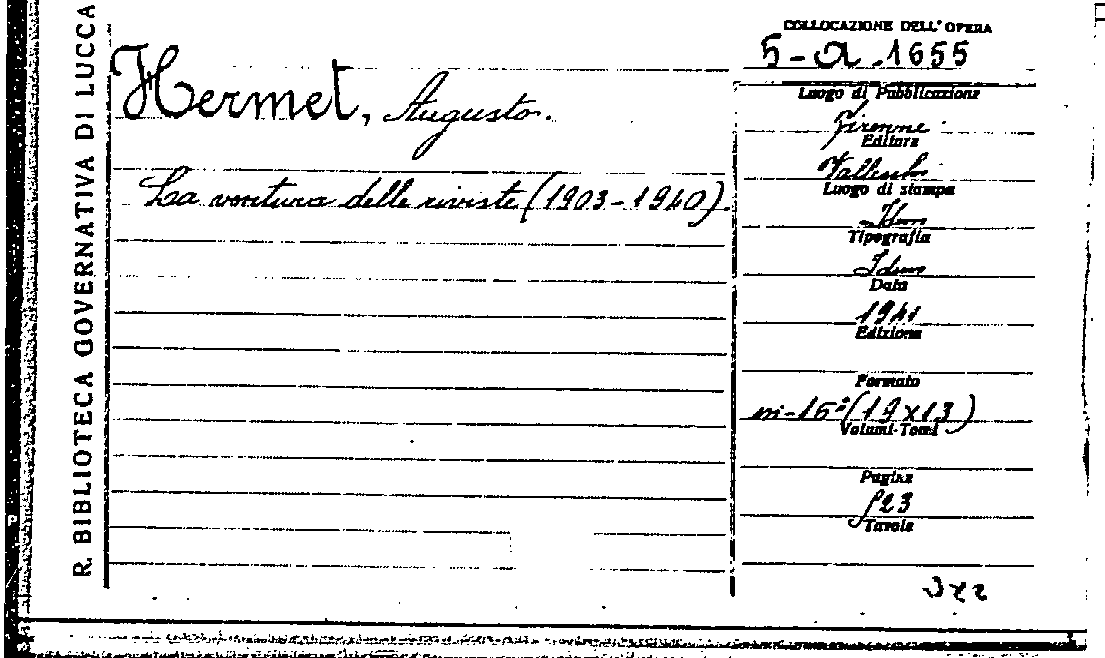 R. BIBLIOTECA GOVERNATIVA DI LUCCA
Hermet, Augusto.
La ventura delle riviste (1903-1940).
COLLOCAZIONE DELL' OPERA
5-a.1655
Luogo di Pubblicazione
Firenze
Editore
Vallecchi
Luogo di stampa
Idem
Tipografia
Idem
Data
1941
Edizione
Formato
in-16º (19x13)
Volumi-Tomi
Pagine
523
Tavole